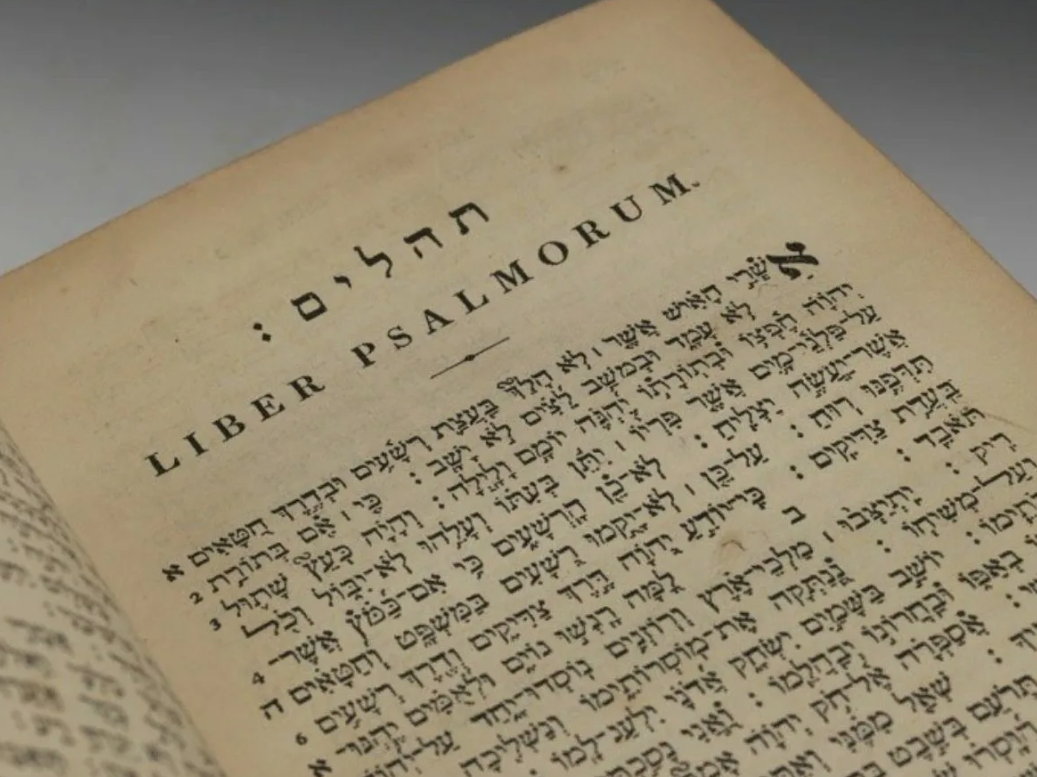 תהלים :
LIBER PSALMORUM.
אַשְׁרֵי הָאִישׁ אֲשֶׁר ׀ לֹא הָלַךְ בַּעֲצַת רְשָׁעִים וּבְדֶרֶךְ חַטָּאִים א
לֹא עָמָד וּבְמשַׁב לֵצִים לֹא יָשָׁב : כִּי ׀ אִם בְּתוֹרַת 2
יְהוָֹה חֶפְצוֹ וּבְתוֹרָתוֹ יֶהְגֶּה יוֹמָם וָלָיְלָה : וְהָיָה כְּעֵץ שָׁתוּל 3
עַל־פַּלְגֵי־מָיִם אֲשֶׁר פִּרְיוֹ ׀ יִתֵּן בְּעִתּוֹ וְעָלֵהוּ לֹא־יִבּוֹל וְכֹל
אֲשֶׁר־יַעֲשֶׂה יַצְלִיחַ : לֹא־כֵן הָרְשָׁעִים כִּי אִם־כַּמֹּץ אֲשֶׁר־ 4
תִּדְּפֶנּוּ רוּחַ : עַל־כֵּן ׀ לֹא־יָקֻמוּ רְשָׁעִים בַּמִּשְׁפָּט וְחַטָּאִים ה
בַּעֲדַת צַדִּיקִים : כִּי־יוֹדֵעַ יְהוָֹה דֶּרֶךְ צַדִּיקִים וְדֶרֶךְ רְשָׁעִים 6
תֹּאבֵד :
ב
לָמָּה רָגְשׁוּ גוֹיִם וּלְאֻמִּים יֶהְגּוּ־ א
רִיק : יִתְיַצְּבוּ ׀ מַלְכֵי־אֶרֶץ וְרוֹזְנִים נוֹסְדוּ־יָחַד
וְעַל־מְשִׁיחוֹ : נְנַתְּקָה אֶת־מוֹסְרוֹתֵימוֹ וְנַשְׁלִיכָה
יוֹשֵׁב בַּשָּׁמַיִם יִשְׂחָק אֲדֹנָי יִלְעַג־לָמוֹ :
בְאַפּוֹ וּבַחֲרוֹנוֹ יְבַהֲלֵמוֹ : וַאֲנִי
אֲסַפְּרָה אֶל־חֹק יְהוָֹה
שְׁאַל מִמֶּנִּי
תְּרֹעֵם בְּשֵׁבֶט